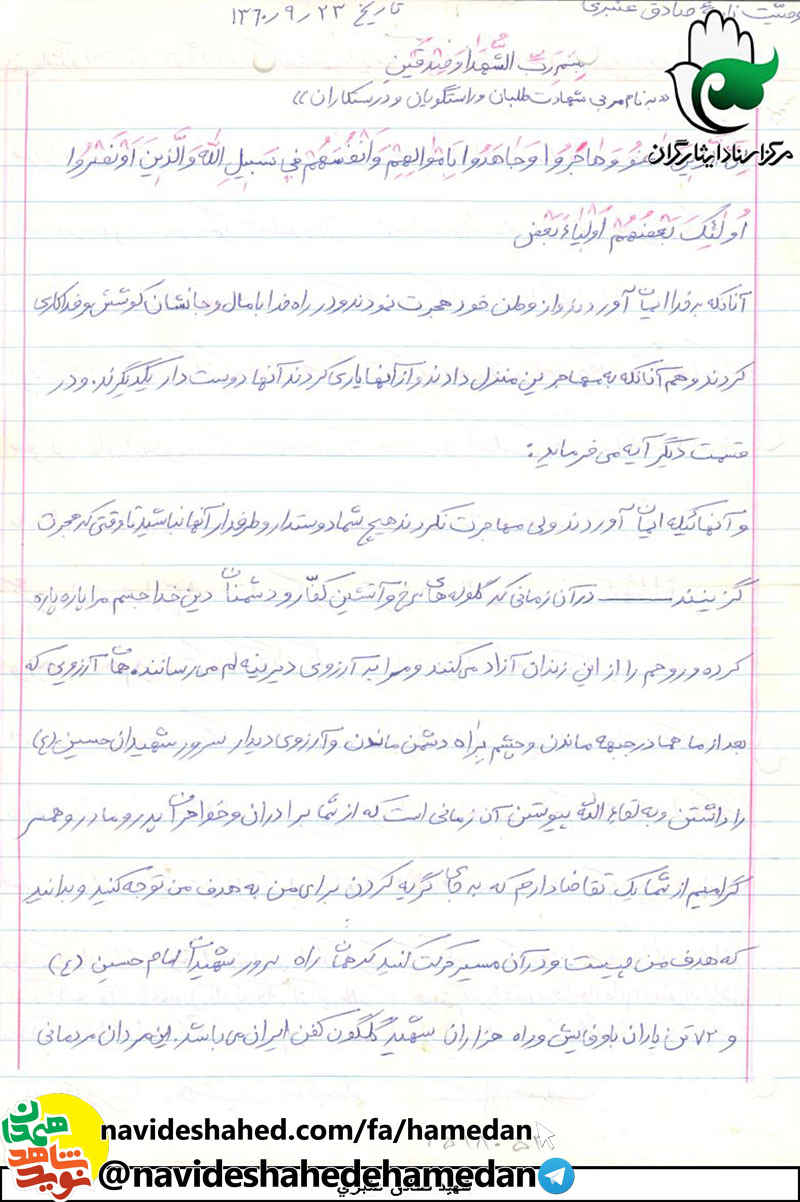 وصیت نامه صادق عنبری
تاریخ ۲۳ / ۹ / ۱۳۶۰
بسم رب الشهدا و صدیقین
«به نام مربی شهادت طلبان و راستگویان و درستکاران»
مرکز اسناد ایثارگران
وَ هاجَرُوا وَ جاهَدُوا بِاَموالِهِم وَ اَنفُسَهُم فی سَبیلِ اللهِ وَ الَّذینَ اوَنَصَرُوا
اُولئِکَ بَعضُهُم اَولِیاءَ بَعض
آنانکه به خدا ایمان آوردند و از وطن خود هجرت نمودند و در راه خدا با مال و جانشان کوشش و فداکاری
کردند و هم آنانکه به مهاجرین منزل دادند و از آنها یاری کردند آنها دوست دار یکدیگرند. و در
قسمت دیگر آیه می فرماید :
و آنهائیکه ایمان آوردند ولی مهاجرت نکردند هیچ شما دوستدار و طرفدار آنها نباشید تا وقتی که هجرت
گزینند ـــــــ در آن زمانی که گلوله های سرخ و آتشین کفّار و دشمنان دین خدا جسم مرا پاره پاره
کرده و روحم را از این زندان آزاد می کنند و مرا به آرزوی دیرینه ام می رسانند. همان آرزویی که
بعد از ماهها در جبهه ماندن و چشم براه دشمن ماندن و آرزوی دیدار سرور شهیدان حسین (ع)
را داشتن و به لقاء الله پیوستن آن زمانی است که از شما برادران و خواهران پدر و مادر و همسر
گرامیم از شما یک تقاضا دارم که به جای گریه کردن برای من به هدف من توجه کنید و بدانید
که هدف من چیست و در آن مسیر حرکت کنید که همان راه سرور شهیدان امام حسین (ع)
و ۷۲ تن یاران باوفایش و راه هزاران شهید گلگون کفن ایران می باشد. این مردان مردمانی
نوید شاهد همدان
navideshahed.com/fa/hamedan
@navideshahedehamedan
شهید صادق عنبري